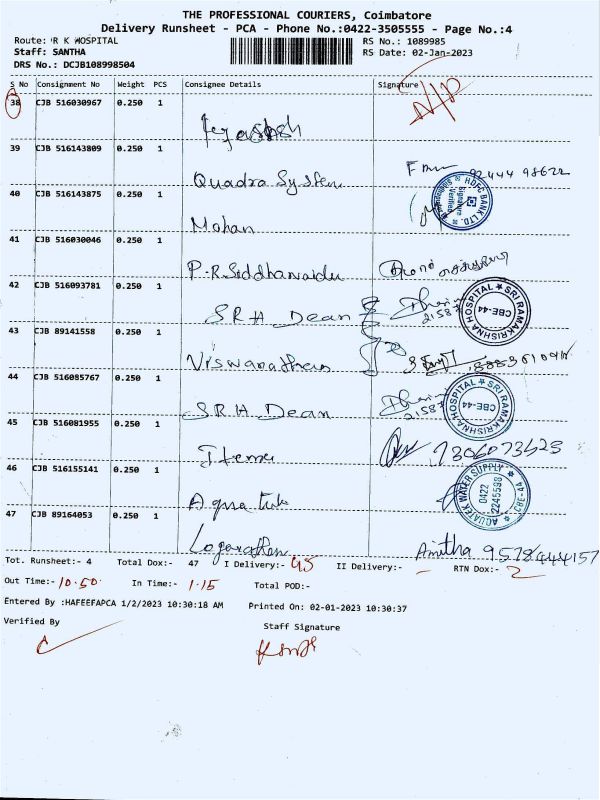 THE PROFESSIONAL COURIERS, Coimbatore
Delivery Runsheet - PCA - Phone No.:0422-3505555 - Page No.:4
Route: R K HOSPITAL
RS No.: 1089985
Staff: SANTHA
RS Date: 02-Jan-2023
DRS No.: DCJB108998504
S No Consignment No Weight PCS Consignee Details Signature
38 CJB 516030967 0.250 1 N/D
39 CJB 516143809 0.250 1 Quadra System
40 CJB 516143875 0.250 1 Mohan
HDFC BANK LTD. Signature Verified
41 CJB 516030046 0.250 1 P.R.Siddhanaidu
42 CJB 516093781 0.250 1 S.R.H Dean 21587
SRI RAMAKRISHNA HOSPITAL CBE-44
43 CJB 89141558 0.250 1 Viswanathan
44 CJB 516085767 0.250 1 S.R.H Dean 21587
SRI RAMAKRISHNA HOSPITAL CBE-44
45 CJB 516081955 0.250 1
46 CJB 516155141 0.250 1
AQUATEK WATER SUPPLY 0422 2245598 CBE-44
47 CJB 89164053 0.250 1 Loganathan Amitha 9578444157
Tot. Runsheet:- 4 Total Dox:- 47 I Delivery:- 45 II Delivery:- - RTN Dox:- 2
Out Time:- 10.50 In Time:- 1.15 Total POD:-
Entered By :HAFEEFAPCA 1/2/2023 10:30:18 AM Printed On: 02-01-2023 10:30:37
Verified By Staff Signature